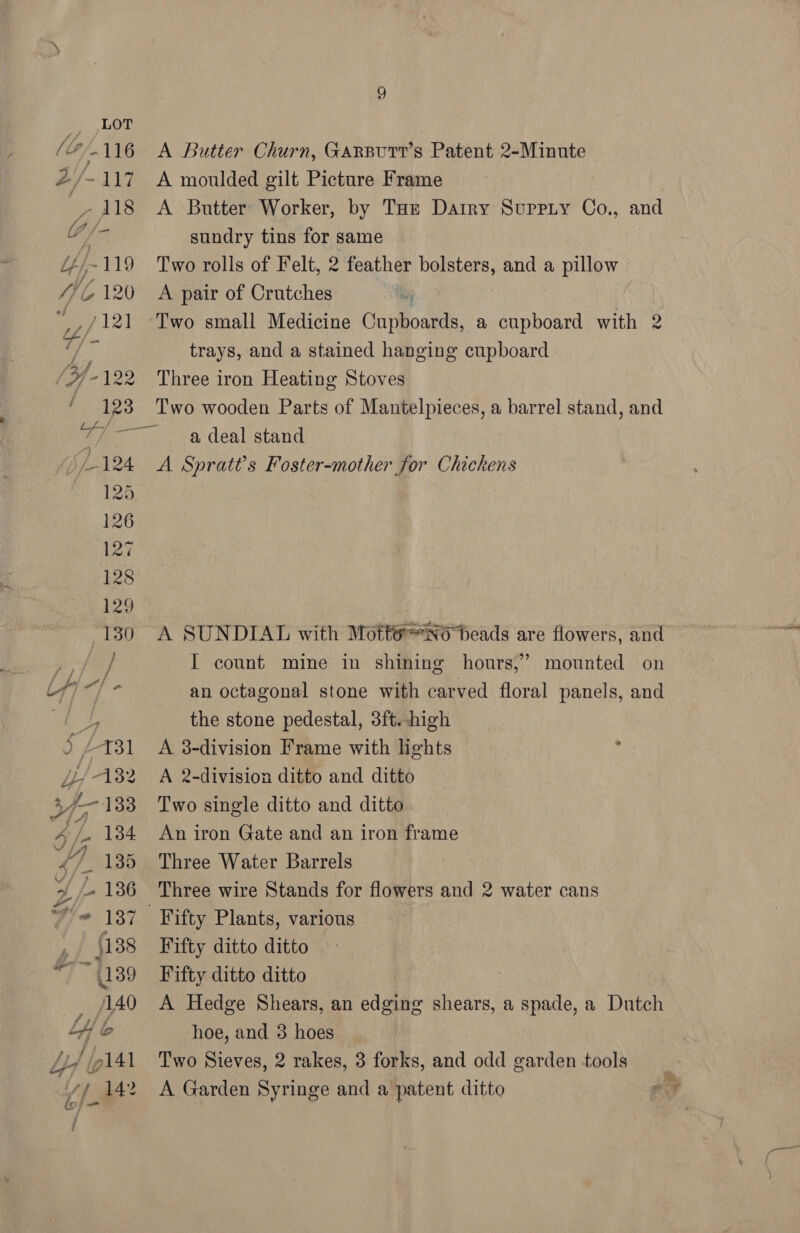 9
LOT
116 A Butter Churn, GARBUTT'S Patent 2-Minute
117 A moulded gilt Picture Frame
118 A Butter Worker, by THE DAIRY SUPPLY Co., and
sundry tins for same
119 Two rolls of Felt, 2 feather bolsters, and a pillow
120 A pair of Crutches
121 Two small Medicine Cupboards, a cupboard with 2
trays, and a stained hanging cupboard
122 Three iron Heating Stoves
123 Two wooden Parts of Mantelpieces, a barrel stand, and
a deal stand
124 A Spratt's Foster-mother for Chickens
125
126
127
128
129
130 A SUNDIAL with Motto "No beads are flowers, and
I count mine in shining hours," mounted on
an octagonal stone with carved floral panels, and
the stone pedestal, 3ft. high
131 A 3-division Frame with lights
132 A 2-division ditto and ditto
133 Two single ditto and ditto
134 An iron Gate and an iron frame
135 Three Water Barrels
136 Three wire Stands for flowers and 2 water cans
137 Fifty Plants, various
138 Fifty ditto ditto
139 Fifty ditto ditto
140 A Hedge Shears, an edging shears, a spade, a Dutch
hoe, and 3 hoes
141 Two Sieves, 2 rakes, 3 forks, and odd garden tools
142 A Garden Syringe and a patent ditto